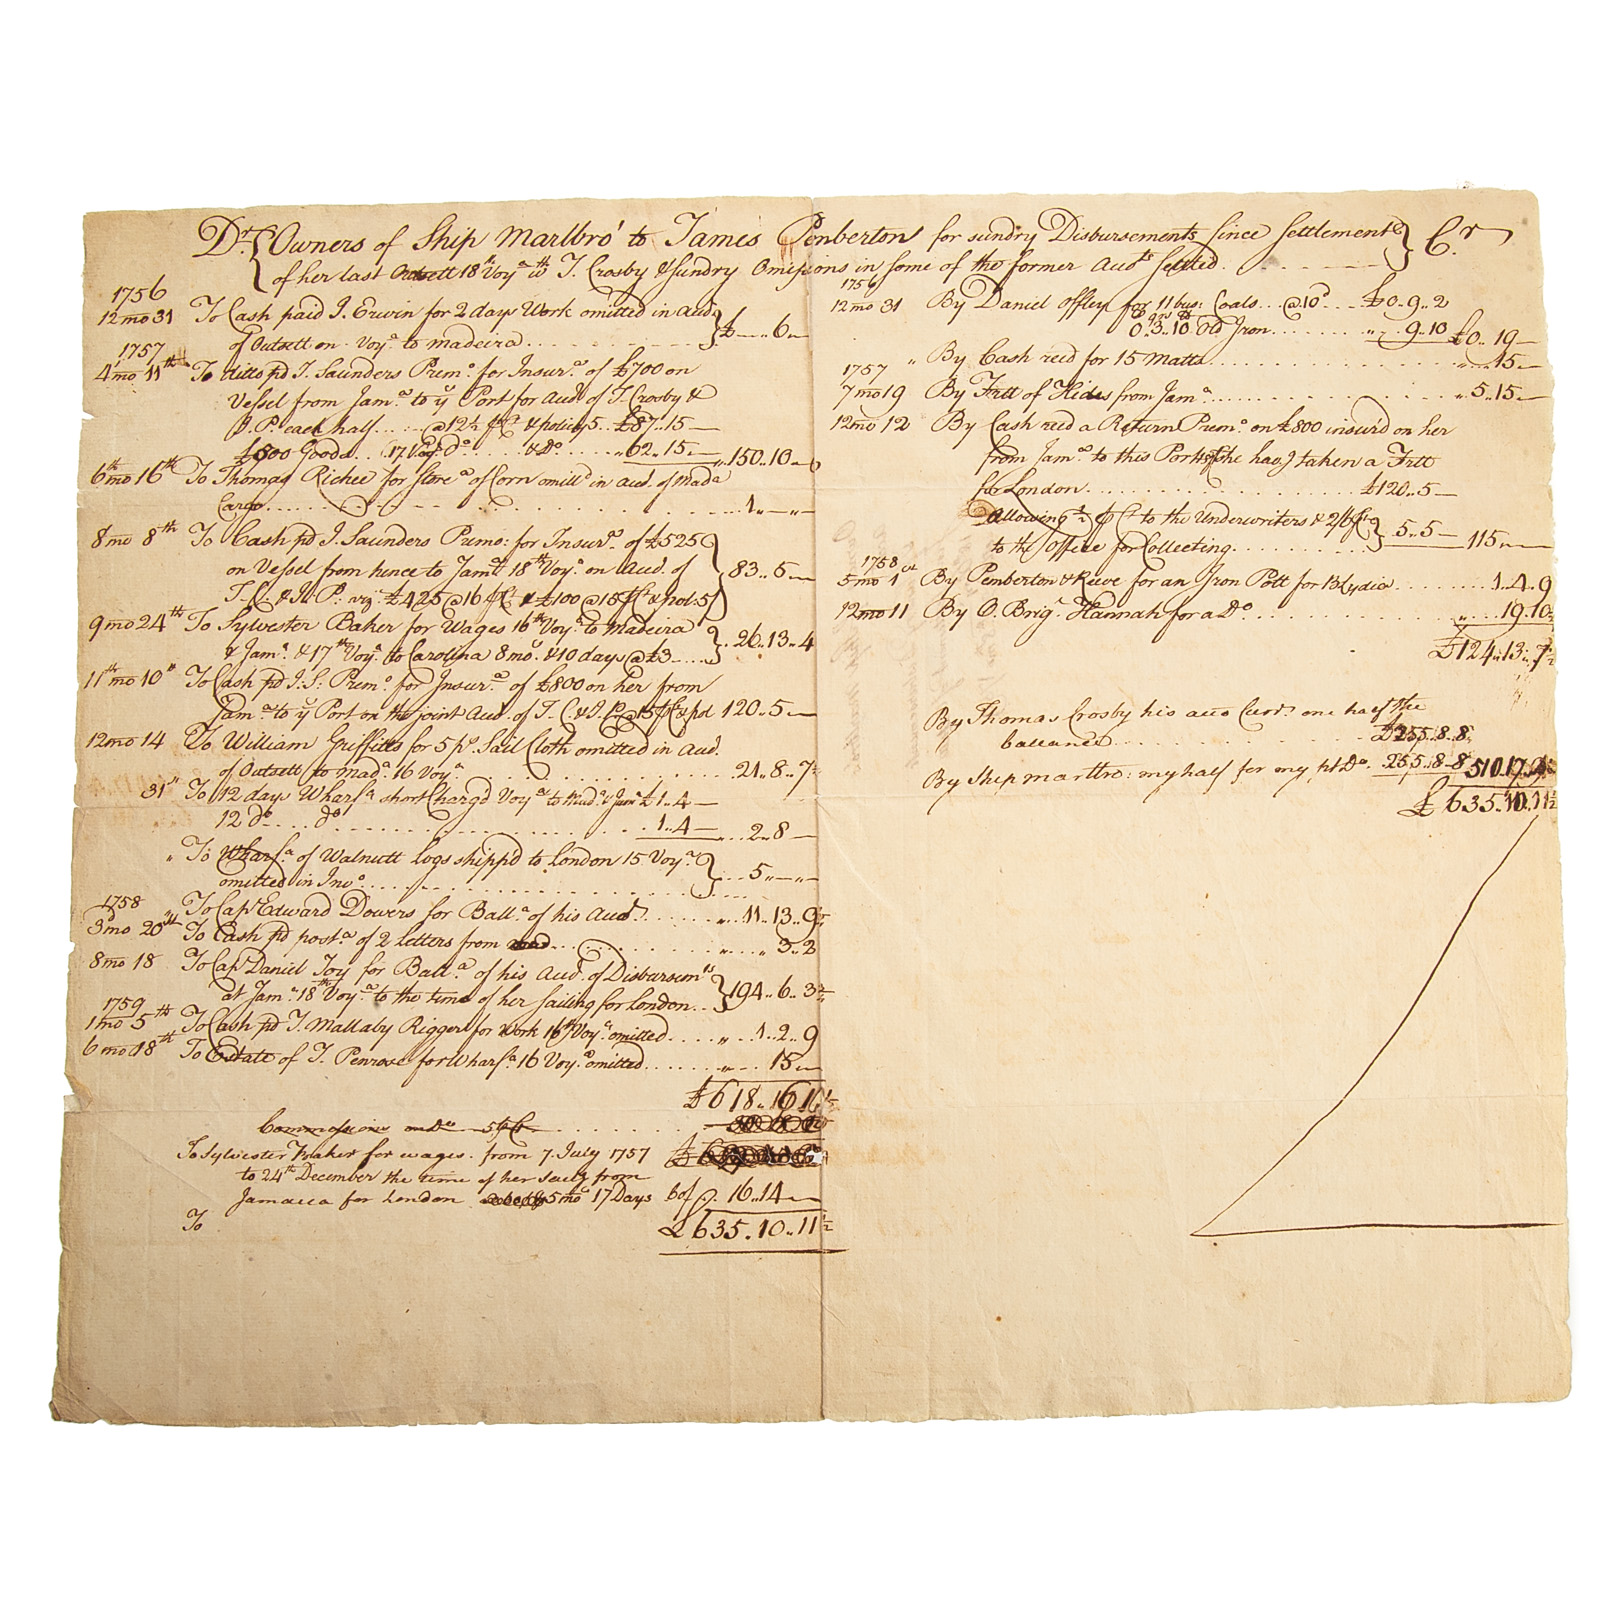 Dr { Owners of Ship Marlbro' to James Pemberton for sundry Disbursements since Settlement } Cr
of her last Outsett 18th Voya wth T. Crosby & sundry Omissions in some of the former Auots settled
1756
12mo 31 To Cash paid J. Erwin for 2 days Work omitted in Auot
of Outsett on Voya to madeira } £ - .. 6 -
1757
4mo 11th To ditto pd J. Saunders Premo for Insura of £700 on
Vessel from Jama to ye Port for Auot of T. Crosby &
J. P. each half @ 12½ pCt & policy 5 £87..15 -
£500 Goods 17 Voya Do & Do 62..15 - 150..10 -
6th mo 16th To Thomas Richee for store a of Corn omittd in Auot of Mada
Cargo 1 .. - .. -
8mo 8th To Cash pd J. Saunders Premo: for Insura of £525
on Vessel from hence to Jama 18th Voya on Auot of
T. C. & J. P. viz £425 @ 16 pCt & £100 @ 15 pCt & pol. 5/ } 83..5 -
9mo 24th To Sylvester Baker for Wages 16th Voya to Madeira
& Jama & 17th Voya to Carolina 8 mos & 10 days @ £3 } 26..13..4
11th mo 10th To Cash pd J. S. Premo for Insura of £800 on her from
Jama to ye Port on the joint Auot of T. C. & J. P. @ 15 pCt & pol 120..5 -
12mo 14 To William Griffitts for 5 ps Sail Cloth omitted in Auot
of Outsett to Mada 16 Voya 21..8..7½
31" To 12 days Wharfa short Chargd Voya to Mada & Jama £1..4 -
12 Do Do 1..4 - 2..8 -
" To Wharfa of Walnutt Logs shipp'd to London 15 Voya
omitted in Invo } 5 .. - .. -
1758
3d mo 20th To Capt Edward Dowers for Balla of his Auot 11..13..9½
To Cash pd posta of 2 Letters from 3..2
8mo 18 To Capt Daniel Joy for Balla of his Auot of Disbursemts
at Jama 18th Voya to the time of her sailing for London } 194..6..3½
1759
1mo 5th To Cash pd T. Mallaby Rigger for Work 16th Voya omitted 1..2..9
6mo 18th To Estate of T. Penrose for Wharfa 16 Voya omitted 15 -
£618..16..11½
Commissions on Do 5 pCt
To Sylvester Baker for wages from 7 July 1757
to 24th December the time of her sailg from
Jamaica for London 5 mos 17 Days 16..14 -
To £635..10..11½
1756
12mo 31 By Daniel Offley for 11 bus: Coals @ 10d £0..9..2
0..3..10 Old Iron 9..10 £0..19 -
" By Cash recd for 15 Matts 15 -
1757
7mo 19 By Frtt of Hides from Jama 5..15 -
12mo 12 By Cash recd a Return Premo on £800 insur'd on her
from Jama to this Port she havg taken a Frtt
for London £120..5 -
Allowing ½ pCt to the Underwriters & 2/6 pCt
to the Office for Collecting } 5..5 - 115 .. -
1758
5mo 1st By Pemberton & Reeve for an Iron Pott for B Lydia 1..4..9
12mo 11 By O. Brigt Hannah for a Do 19..10½
£124..13..7½
By Thomas Crosby his acco Currt one half the
ballance £255..8..8
By Ship marlbro: my half for my pt Do 255..8..8 510..17..4
£635..10..11½